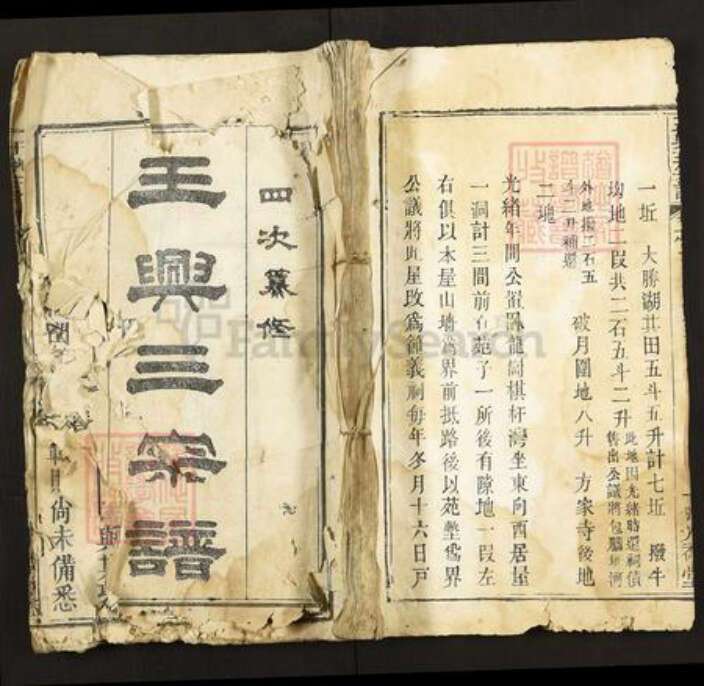 一坵　大勝湖其田五斗五升計七坵　撥牛
均地二段共二石五斗二升
此地因光緒時還祠債
售出公議將包
外
斗二升補還
二塊　破月圍地八升　方家寺後地
光緒年間公置臥龍樹棋杆灣坐東向西居屋
一洞計三間前有苑子一所後有隙地一段左
右俱以本屋山墻為界前抵路後以苑墊為界
公議將此屋改為
義祠每年冬月十六日戸
四次纂修
王興三宗譜
尚未備悉
FamilySearch